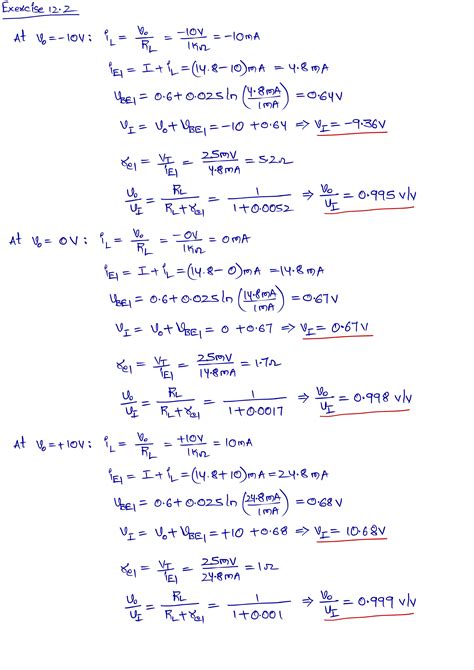 Exercise 12.2
At v₀ = -10V: i_L = v₀/R_L = -10V/1KΩ = -10mA
i_E1 = I + i_L = (14.8-10)mA = 4.8mA
v_BE1 = 0.6 + 0.025 ln(4.8mA/1mA) = 0.64V
v_I = v₀ + v_BE1 = -10 + 0.64 ⇒ v_I = -9.36V
r_e1 = V_T/i_E1 = 25mV/4.8mA = 5.2Ω
v₀/v_I = R_L/(R_L + r_e1) = 1/(1+0.0052) ⇒ v₀/v_I = 0.995 v/v
At v₀ = 0V: i_L = v₀/R_L = -0V/1KΩ = 0mA
i_E1 = I + i_L = (14.8-0)mA = 14.8mA
v_BE1 = 0.6 + 0.025 ln(14.8mA/1mA) = 0.67V
v_I = v₀ + v_BE1 = 0 + 0.67 ⇒ v_I = 0.67V
r_e1 = V_T/i_E1 = 25mV/14.8mA = 1.7Ω
v₀/v_I = R_L/(R_L + r_e1) = 1/(1+0.0017) ⇒ v₀/v_I = 0.998 v/v
At v₀ = +10V: i_L = v₀/R_L = +10V/1KΩ = 10mA
i_E1 = I + i_L = (14.8+10)mA = 24.8mA
v_BE1 = 0.6 + 0.025 ln(24.8mA/1mA) = 0.68V
v_I = v₀ + v_BE1 = +10 + 0.68 ⇒ v_I = 10.68V
r_e1 = V_T/i_E1 = 25mV/24.8mA = 1Ω
v₀/v_I = R_L/(R_L + r_e1) = 1/(1+0.001) ⇒ v₀/v_I = 0.999 v/v